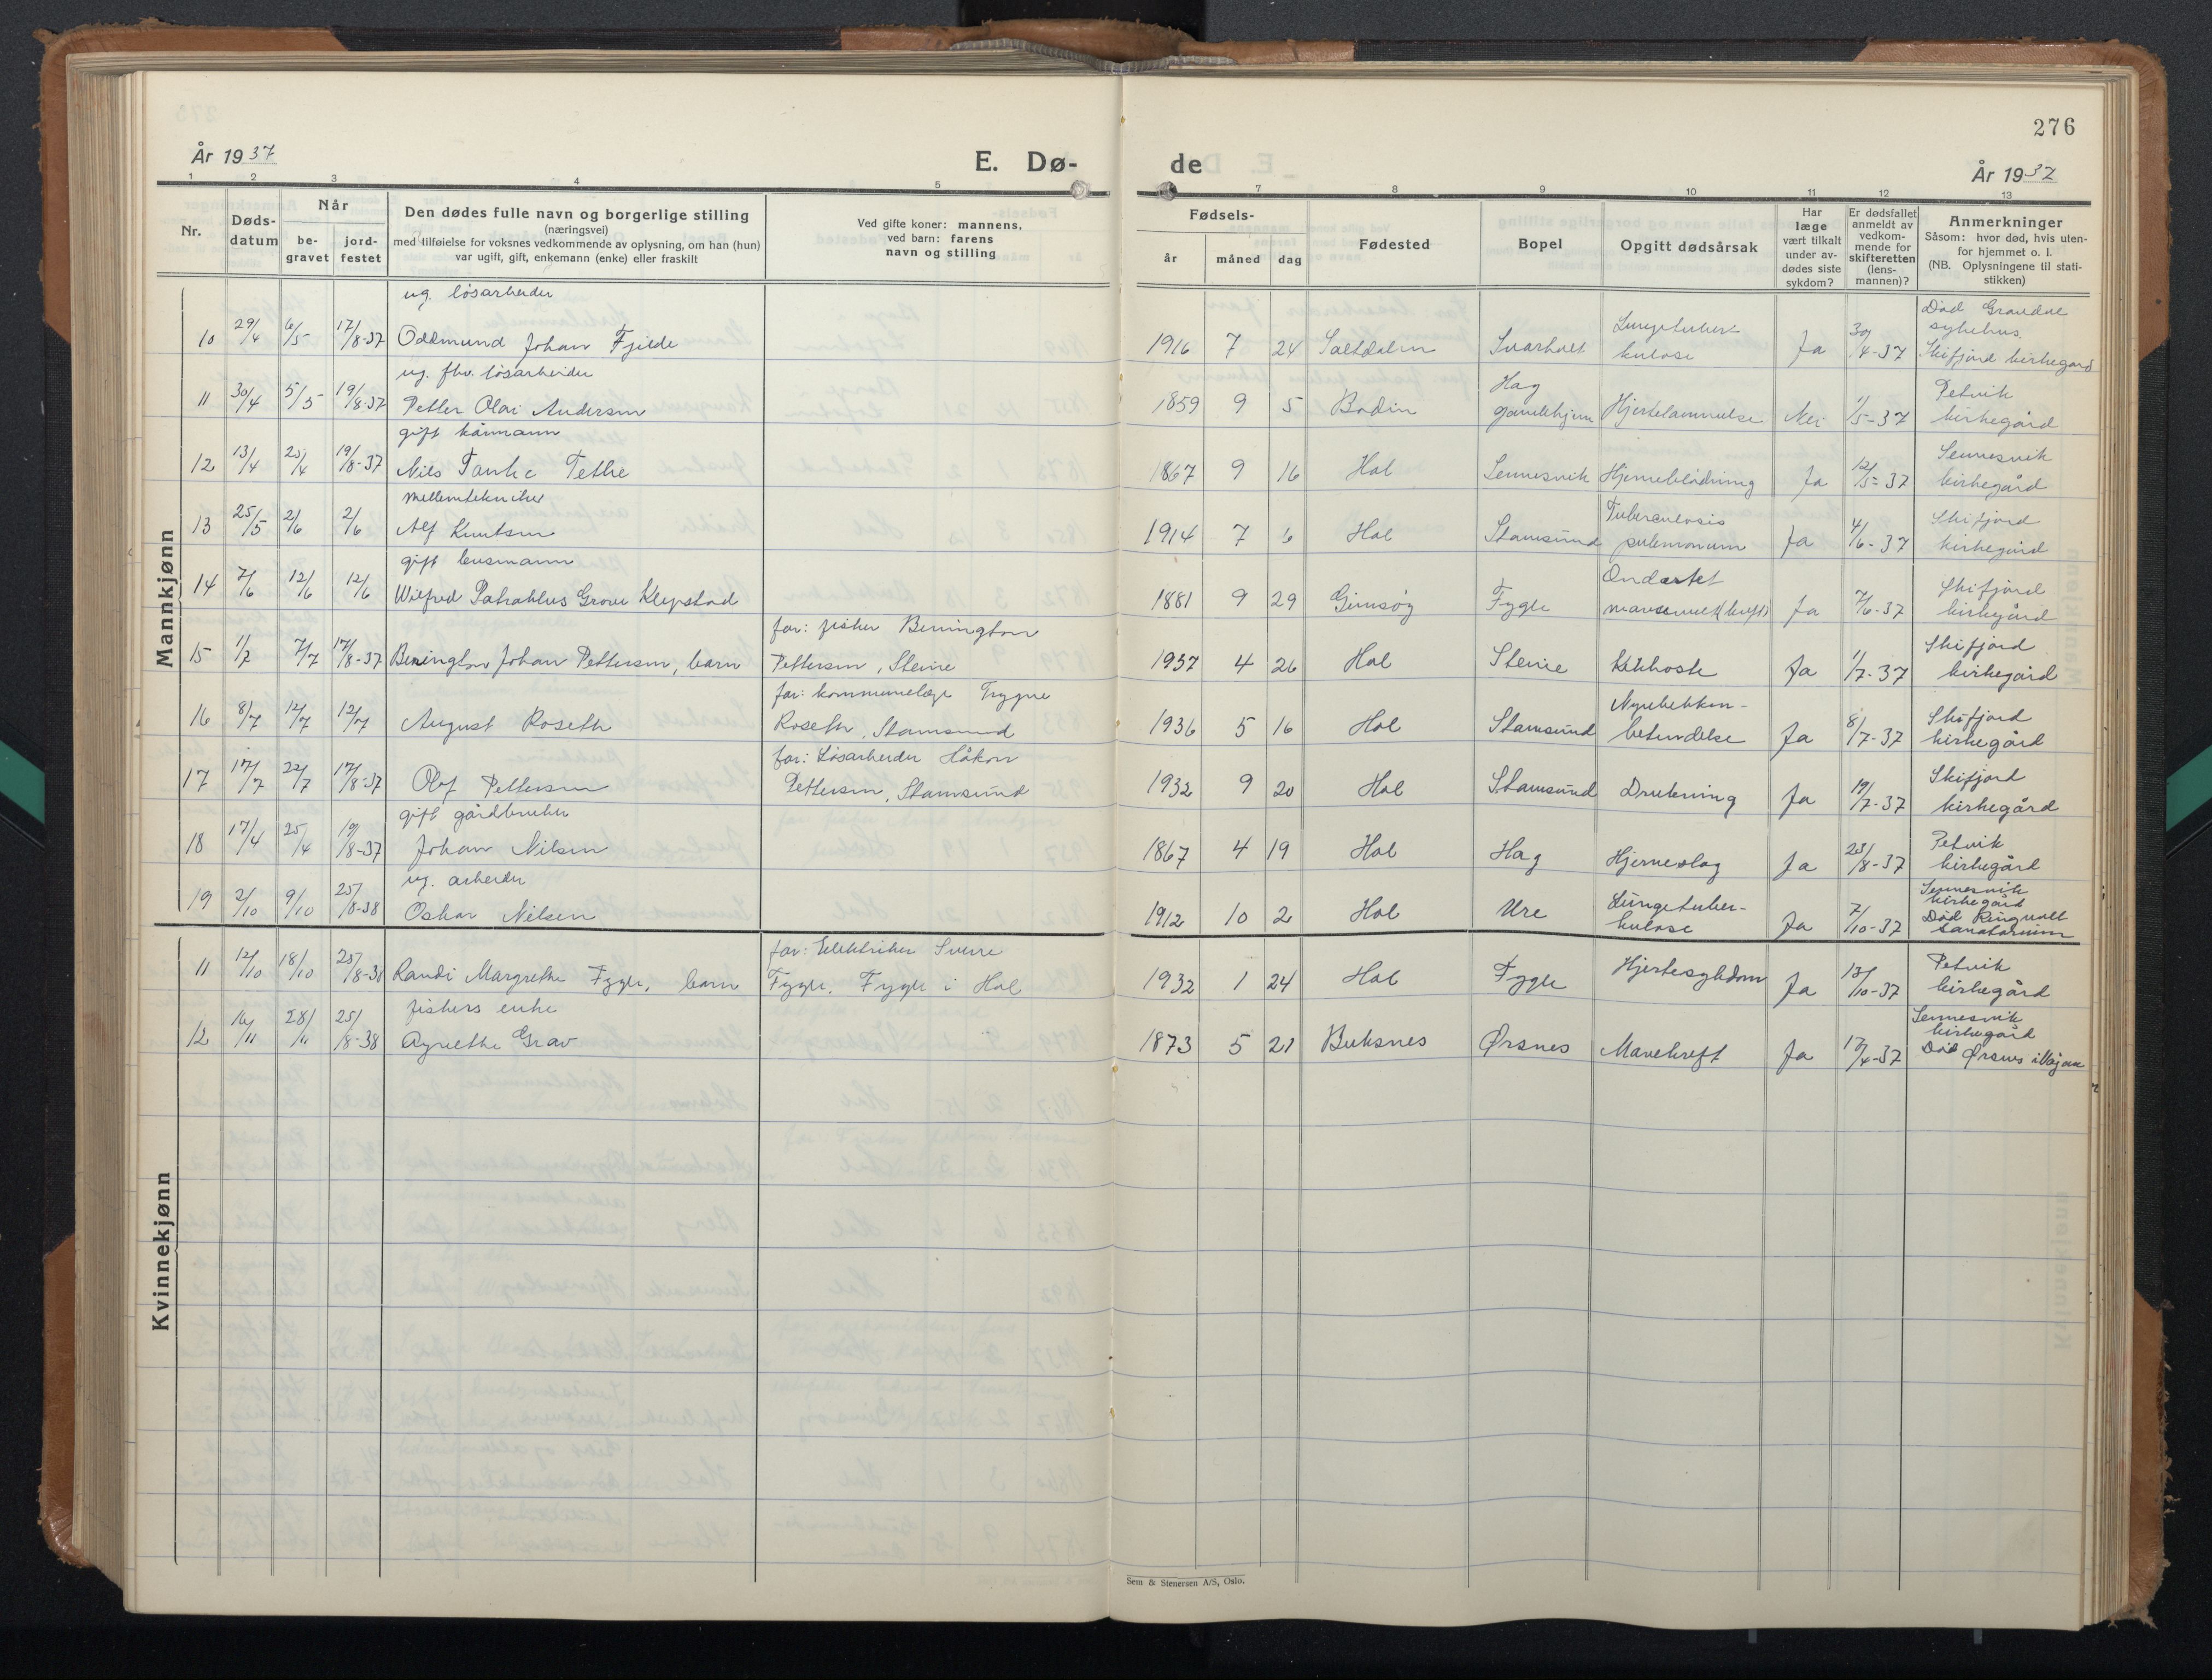 276
År 1937
E. Dø-
de
År 1937
1 2 3 4 5 7 8 9 10 11 12 13
Nr.
Døds-
datum
Når
be-
gravet
jord-
festet
Den dødes fulle navn og borgerlige stilling
(næringsvei)
med tilføielse for voksnes vedkommende av oplysning, om han (hun)
var ugift, gift, enkemann (enke) eller fraskilt
Ved gifte koner: mannens,
ved barn: farens
navn og stilling
Fødsels-
år måned dag
Fødested
Bopel
Opgitt dødsårsak
Har
læge
vært tilkalt
under av-
dødes siste
sykdom?
Er dødsfallet
anmeldt av
vedkom-
mende for
skifteretten
(lens-
mannen)?
Anmerkninger
Såsom: hvor død, hvis uten-
for hjemmet o. l.
(NB. Oplysningene til stati-
stikken)
Mankjønn
ug. løsarbeider
10 29/4 6/5 17/8-37 Oddmund Johan Fjelde
1916 7 24 Saltdalen Svarholt Lungetuber-
kulose Ja 30/4-37
Død Gravdal
sykehus.
Skifjord kirkegård
ug. fhv. løsarbeider
11 30/4 5/5 19/8-37 Petter Olai Andersen
1859 9 5 Bodin Hag
gamlehjem Hjertelammelse Nei 1/5-37
Petvik
kirkegård
gift kårmann
12 13/4 25/4 19/8-37 Nils Tanke Tethe
1867 9 16 Hol Sennesvik Hjerneblødning Ja 12/5-37
Sennesvik
kirkegård
mellemtekniker
13 25/5 2/6 2/6 Alf Knutsen
1914 7 6 Hol Stamsund Tuberculosis
pulmonum Ja 4/6-37
Skifjord
kirkegård
gift lensmann
14 7/6 12/6 12/6 Wilfred Patrahlus Grove Klepstad
1881 9 29 Gimsøy Fygle Ondartet
mavesvulst (kreft) Ja 7/6-37
Skifjord
kirkegård
15 1/7 7/7 17/8-37 Benington Johan Pettersen, barn
far: fisker Benington
Pettersen, Steine
1937 4 26 Hol Steine Kikhoste Ja 1/7-37
Skifjord
kirkegård
16 8/7 12/7 12/7 August Roseth
far: kommunelæge Trygve
Roseth, Stamsund
1936 5 16 Hol Stamsund Nyrebekken-
betendelse Ja 8/7-37
Skifjord
kirkegård
17 17/7 22/7 17/8-37 Olof Pettersen
far: Løsarbeider Håkon
Pettersen, Stamsund
1932 9 20 Hol Stamsund Drukning Ja 19/7-37
Skifjord
kirkegård
gift gårdbruker
18 17/4 25/4 19/8-37 Johan Nilsen
1867 4 19 Hol Hag Hjerneslag Ja 25/8-37
Petvik
kirkegård
ug. arbeider
19 2/10 9/10 25/8-38 Oskar Nilsen
1912 10 2 Hol Ure Lungetuber-
kulose Ja 7/10-37
Sennesvik
kirkegård
Død Ringvoll
Sanatorium
Kvinnekjønn
11 12/10 18/10 25/8-38 Randi Margrethe Fygle, barn
far: Elektriker Sverre
Fygle, Fygle i Hol
1932 1 24 Hol Fygle Hjertesykdom Ja 13/10-37
Petvik
kirkegård
fiskers enke
12 16/11 28/11 25/8-38 Agnethe Grav
1873 5 21 Buksnes Ørsnes Mavekreft Ja 17/4-37
Sennesvik
kirkegård
Død Ørsnes i Vågan
Sem & Stenersen A/S, Oslo.